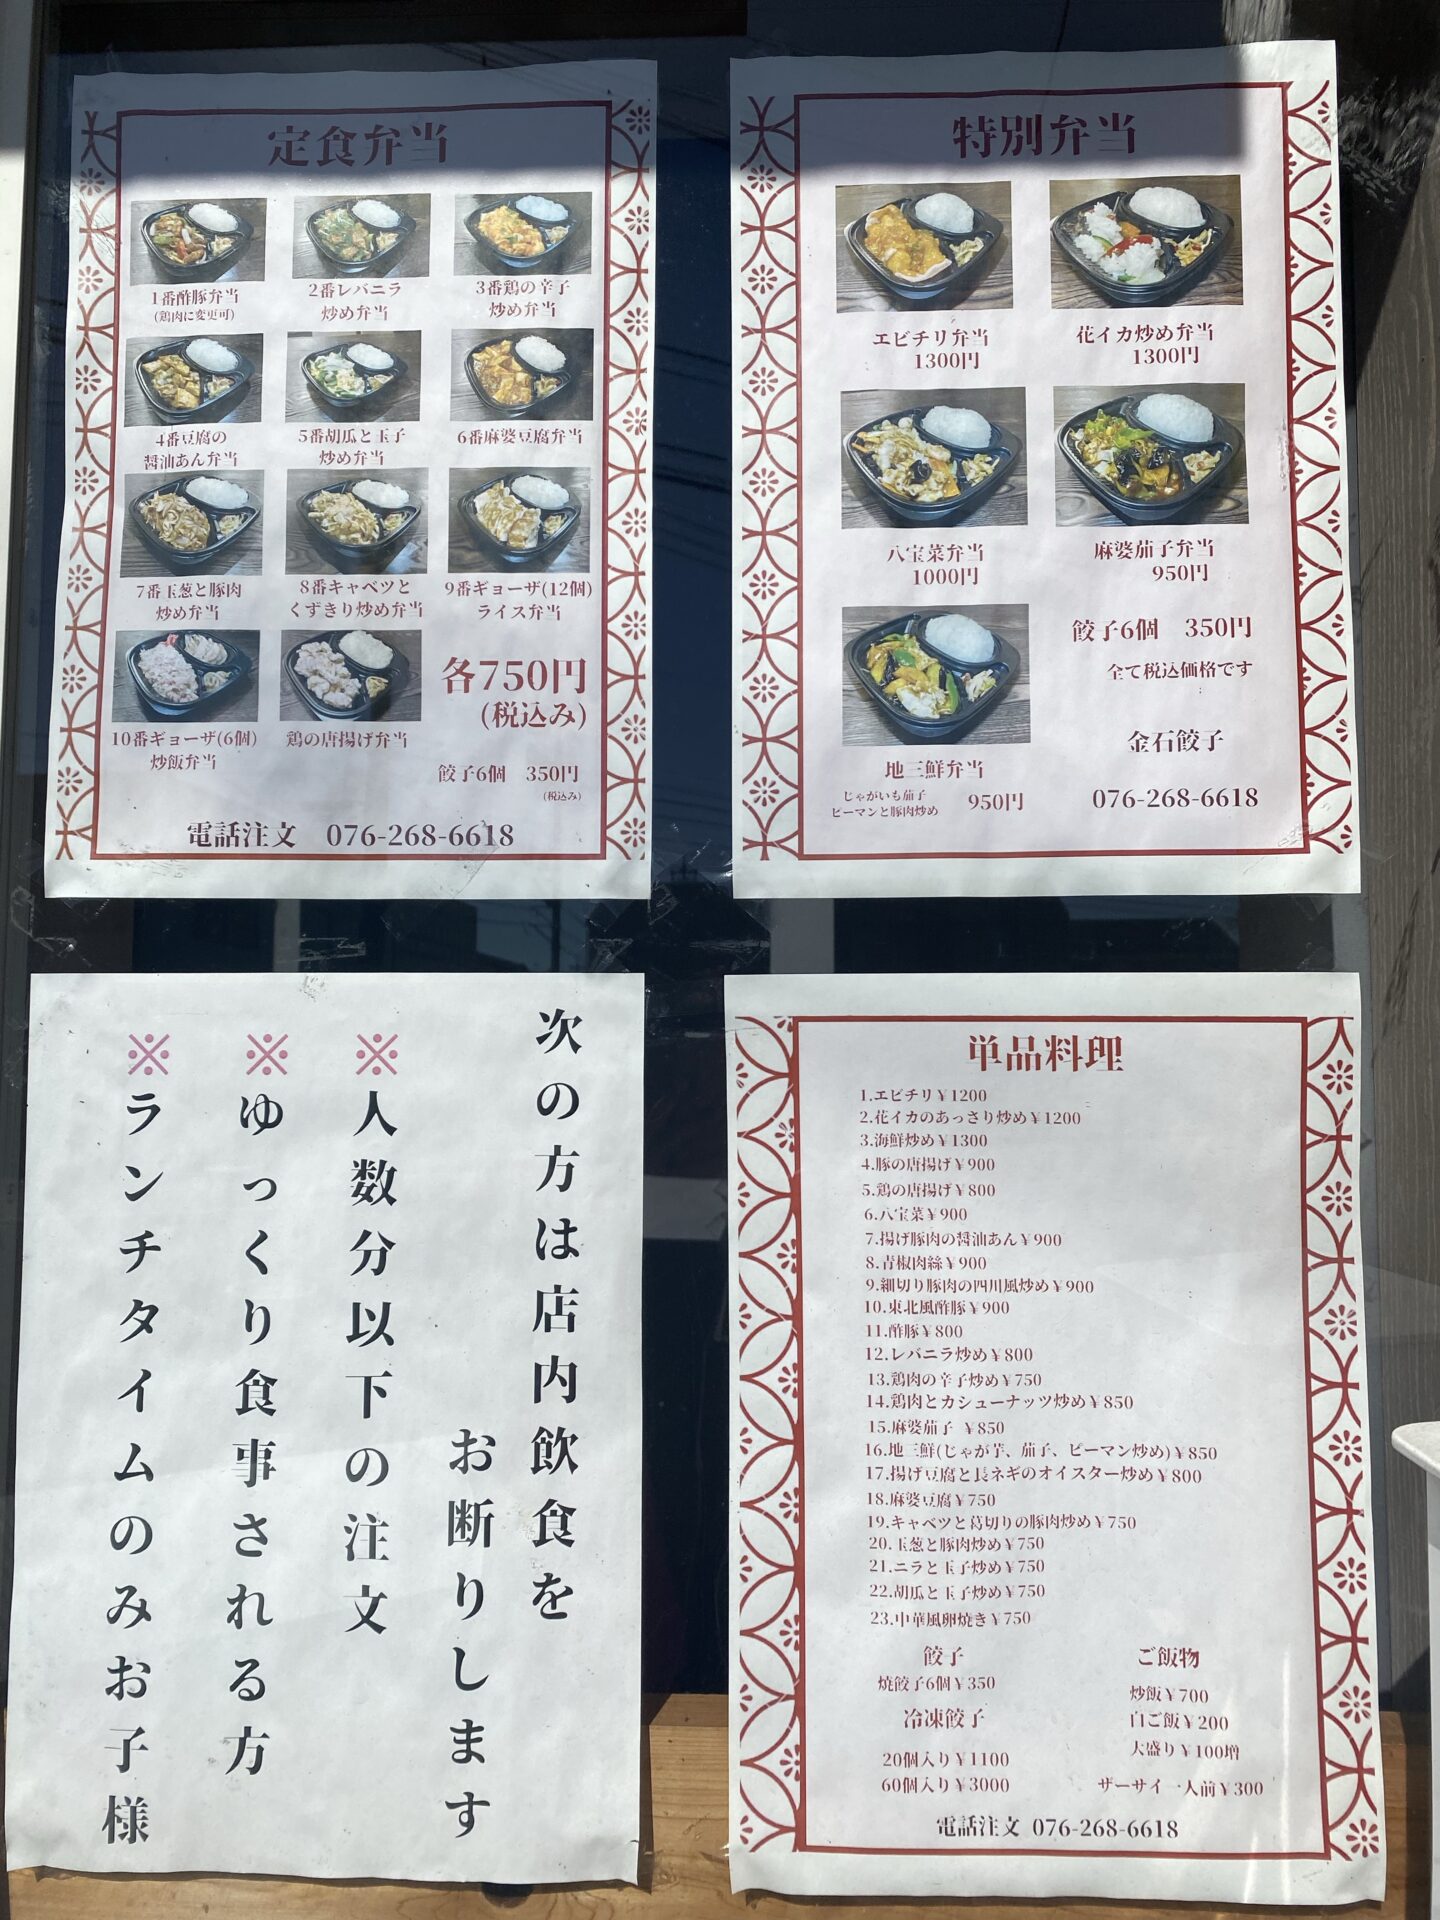 定食弁当
1番酢豚弁当
(鶏肉に変更可)
2番レバニラ
炒め弁当
3番鶏の辛子
炒め弁当
4番豆腐の
醤油あん弁当
5番胡瓜と玉子
炒め弁当
6番麻婆豆腐弁当
7番玉葱と豚肉
炒め弁当
8番キャベツと
くずきり炒め弁当
9番ギョーザ(12個)
ライス弁当
10番ギョーザ(6個)
炒飯弁当
鶏の唐揚げ弁当
各750円
(税込み)
餃子6個 350円
(税込み)
電話注文 076-268-6618
特別弁当
エビチリ弁当
1300円
花イカ炒め弁当
1300円
八宝菜弁当
1000円
麻婆茄子弁当
950円
地三鮮弁当
じゃがいも茄子
ピーマンと豚肉炒め
950円
餃子6個 350円
全て税込価格です
金石餃子
076-268-6618
次の方は店内飲食を
お断りします
※人数分以下の注文
※ゆっくり食事される方
※ランチタイムのみお子様
単品料理
1.エビチリ￥1200
2.花イカのあっさり炒め￥1200
3.海鮮炒め￥1300
4.豚の唐揚げ￥900
5.鶏の唐揚げ￥800
6.八宝菜￥900
7.揚げ豚肉の醤油あん￥900
8.青椒肉絲￥900
9.細切り豚肉の四川風炒め￥900
10.東北風酢豚￥900
11.酢豚￥800
12.レバニラ炒め￥800
13.鶏肉の辛子炒め￥750
14.鶏肉とカシューナッツ炒め￥850
15.麻婆茄子 ￥850
16.地三鮮(じゃが芋、茄子、ピーマン炒め)￥850
17.揚げ豆腐と長ネギのオイスター炒め￥800
18.麻婆豆腐￥750
19.キャベツと葛切りの豚肉炒め￥750
20.玉葱と豚肉炒め￥750
21.ニラと玉子炒め￥750
22.胡瓜と玉子炒め￥750
23.中華風卵焼き￥750
餃子
焼餃子6個￥350
冷凍餃子
20個入り￥1100
60個入り￥3000
ご飯物
炒飯￥700
白ご飯￥200
大盛り￥100増
ザーサイ一人前￥300
電話注文 076-268-6618